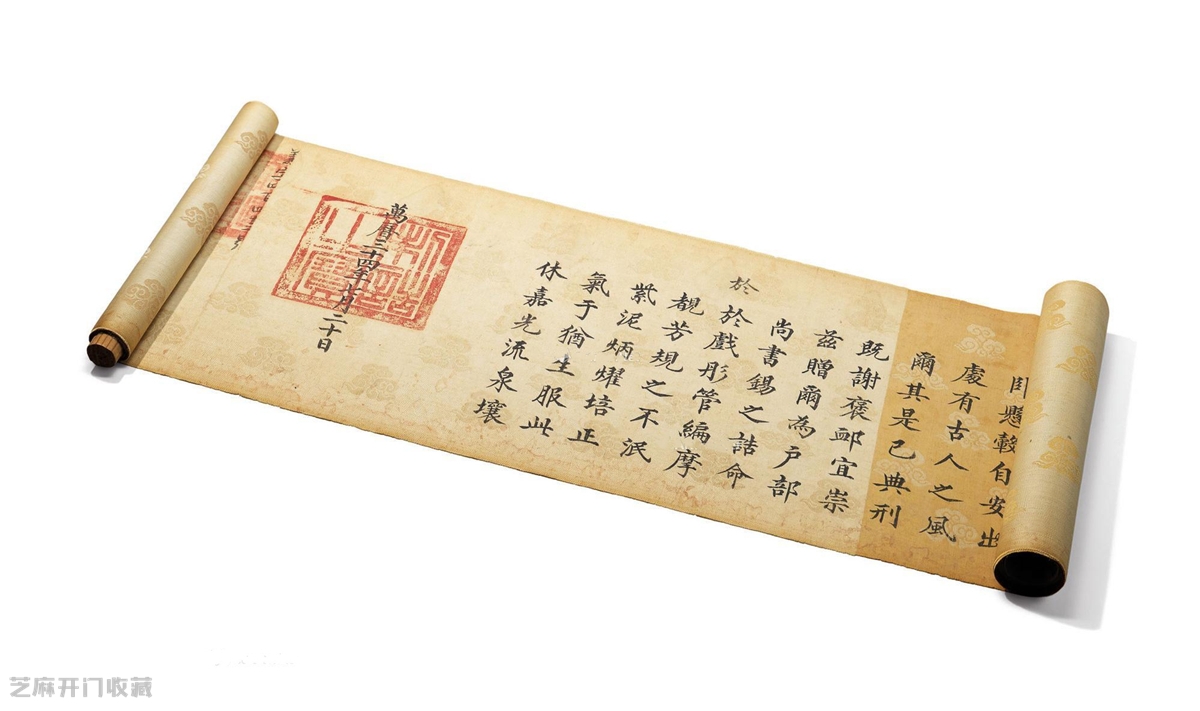 懸自安出
處有古人之風
爾其是已典刑
既謝褒卹宜崇
茲贈爾為戶部
尚書錫之誥命
於
於戲彤管編摩
覩芳規之不泯
紫泥炳燿培正
氣于猶生服此
休嘉光流泉壤
萬曆三十四年七月二十日
制誥之寶
芝麻开门收藏